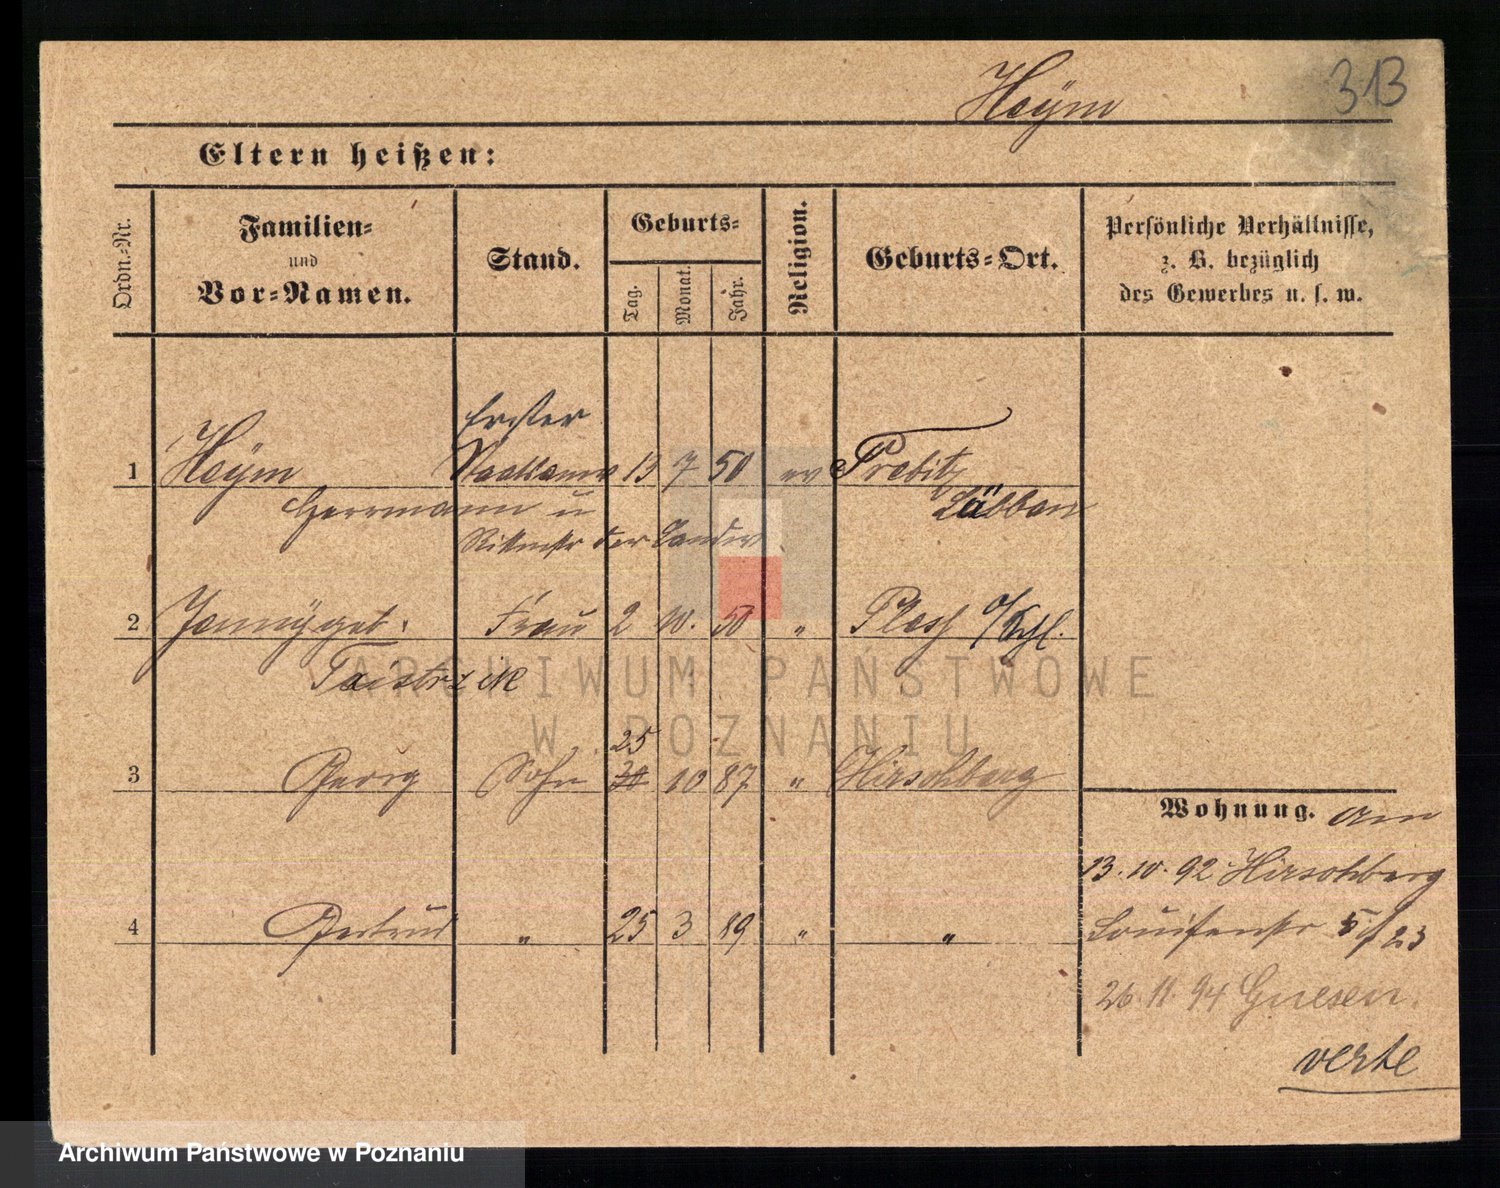 Heÿm
313
Eltern heißen:
Ordn.-Nr.
Familien-
und
Vor-Namen.
Stand.
Geburts-
Tag.
Monat.
Jahr.
Religion.
Geburts-Ort.
Persönliche Verhältnisse,
z. B. bezüglich
des Gewerbes u. s. w.
Erster
1 Heÿm 13 7 50 ev
Herrmann u
Rittmstr der Landw
Lübben
2 Frau 2 10. 50 " Pless O/Schl.
25
3 Georg Sohn 10 87 " Hirschberg
Wohnung. am
13. 10. 92 Hirschberg
4 Gertrud " 25 3 89 " "
Louisenstr 5/23
26. 11. 94 Gnesen.
verte
ARCHIWUM PAŃSTWOWE
W POZNANIU
Archiwum Państwowe w Poznaniu